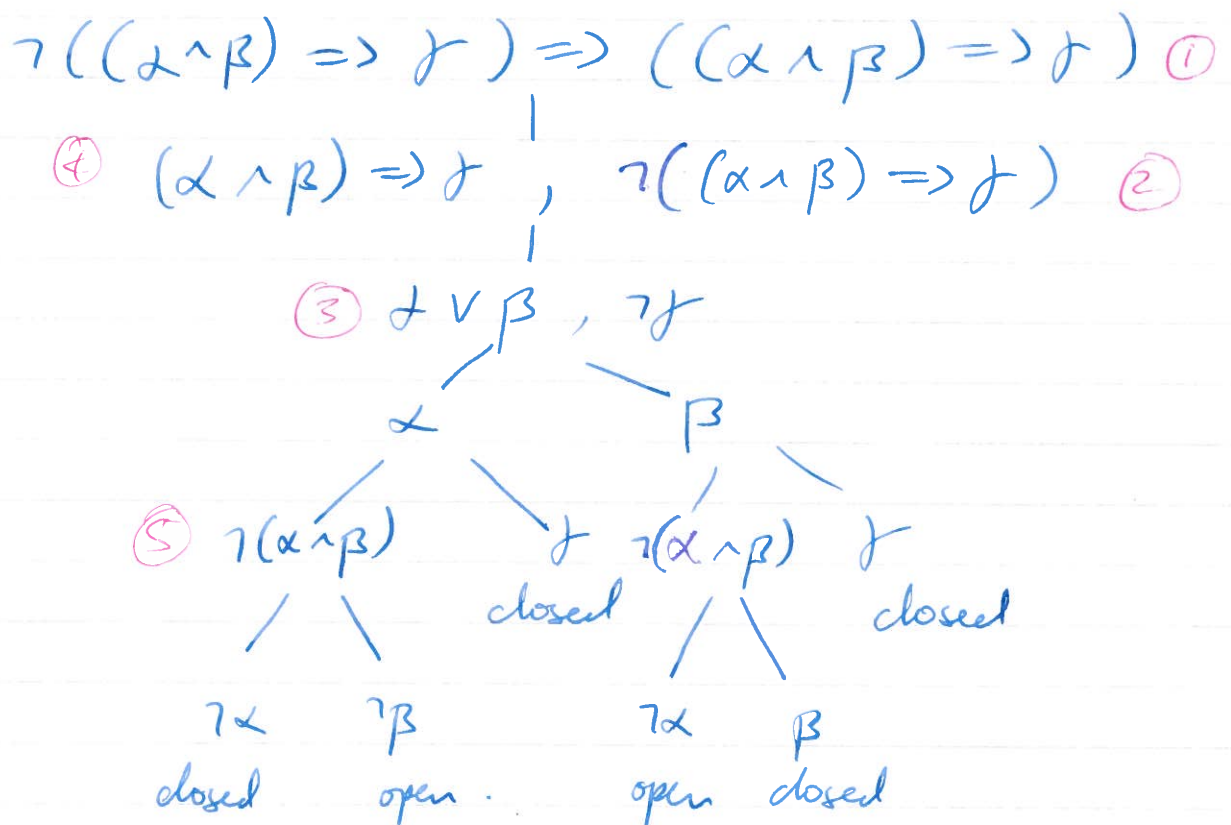 ¬((α∧β) => γ) => ((α∧β) => γ) ①
④ (α∧β) => γ , ¬((α∧β) => γ) ②
③ α ∨ β , ¬γ
α β
⑤ ¬(α∧β) γ ¬(α∧β) γ
closed closed
¬α ¬β ¬α β
closed open. open closed